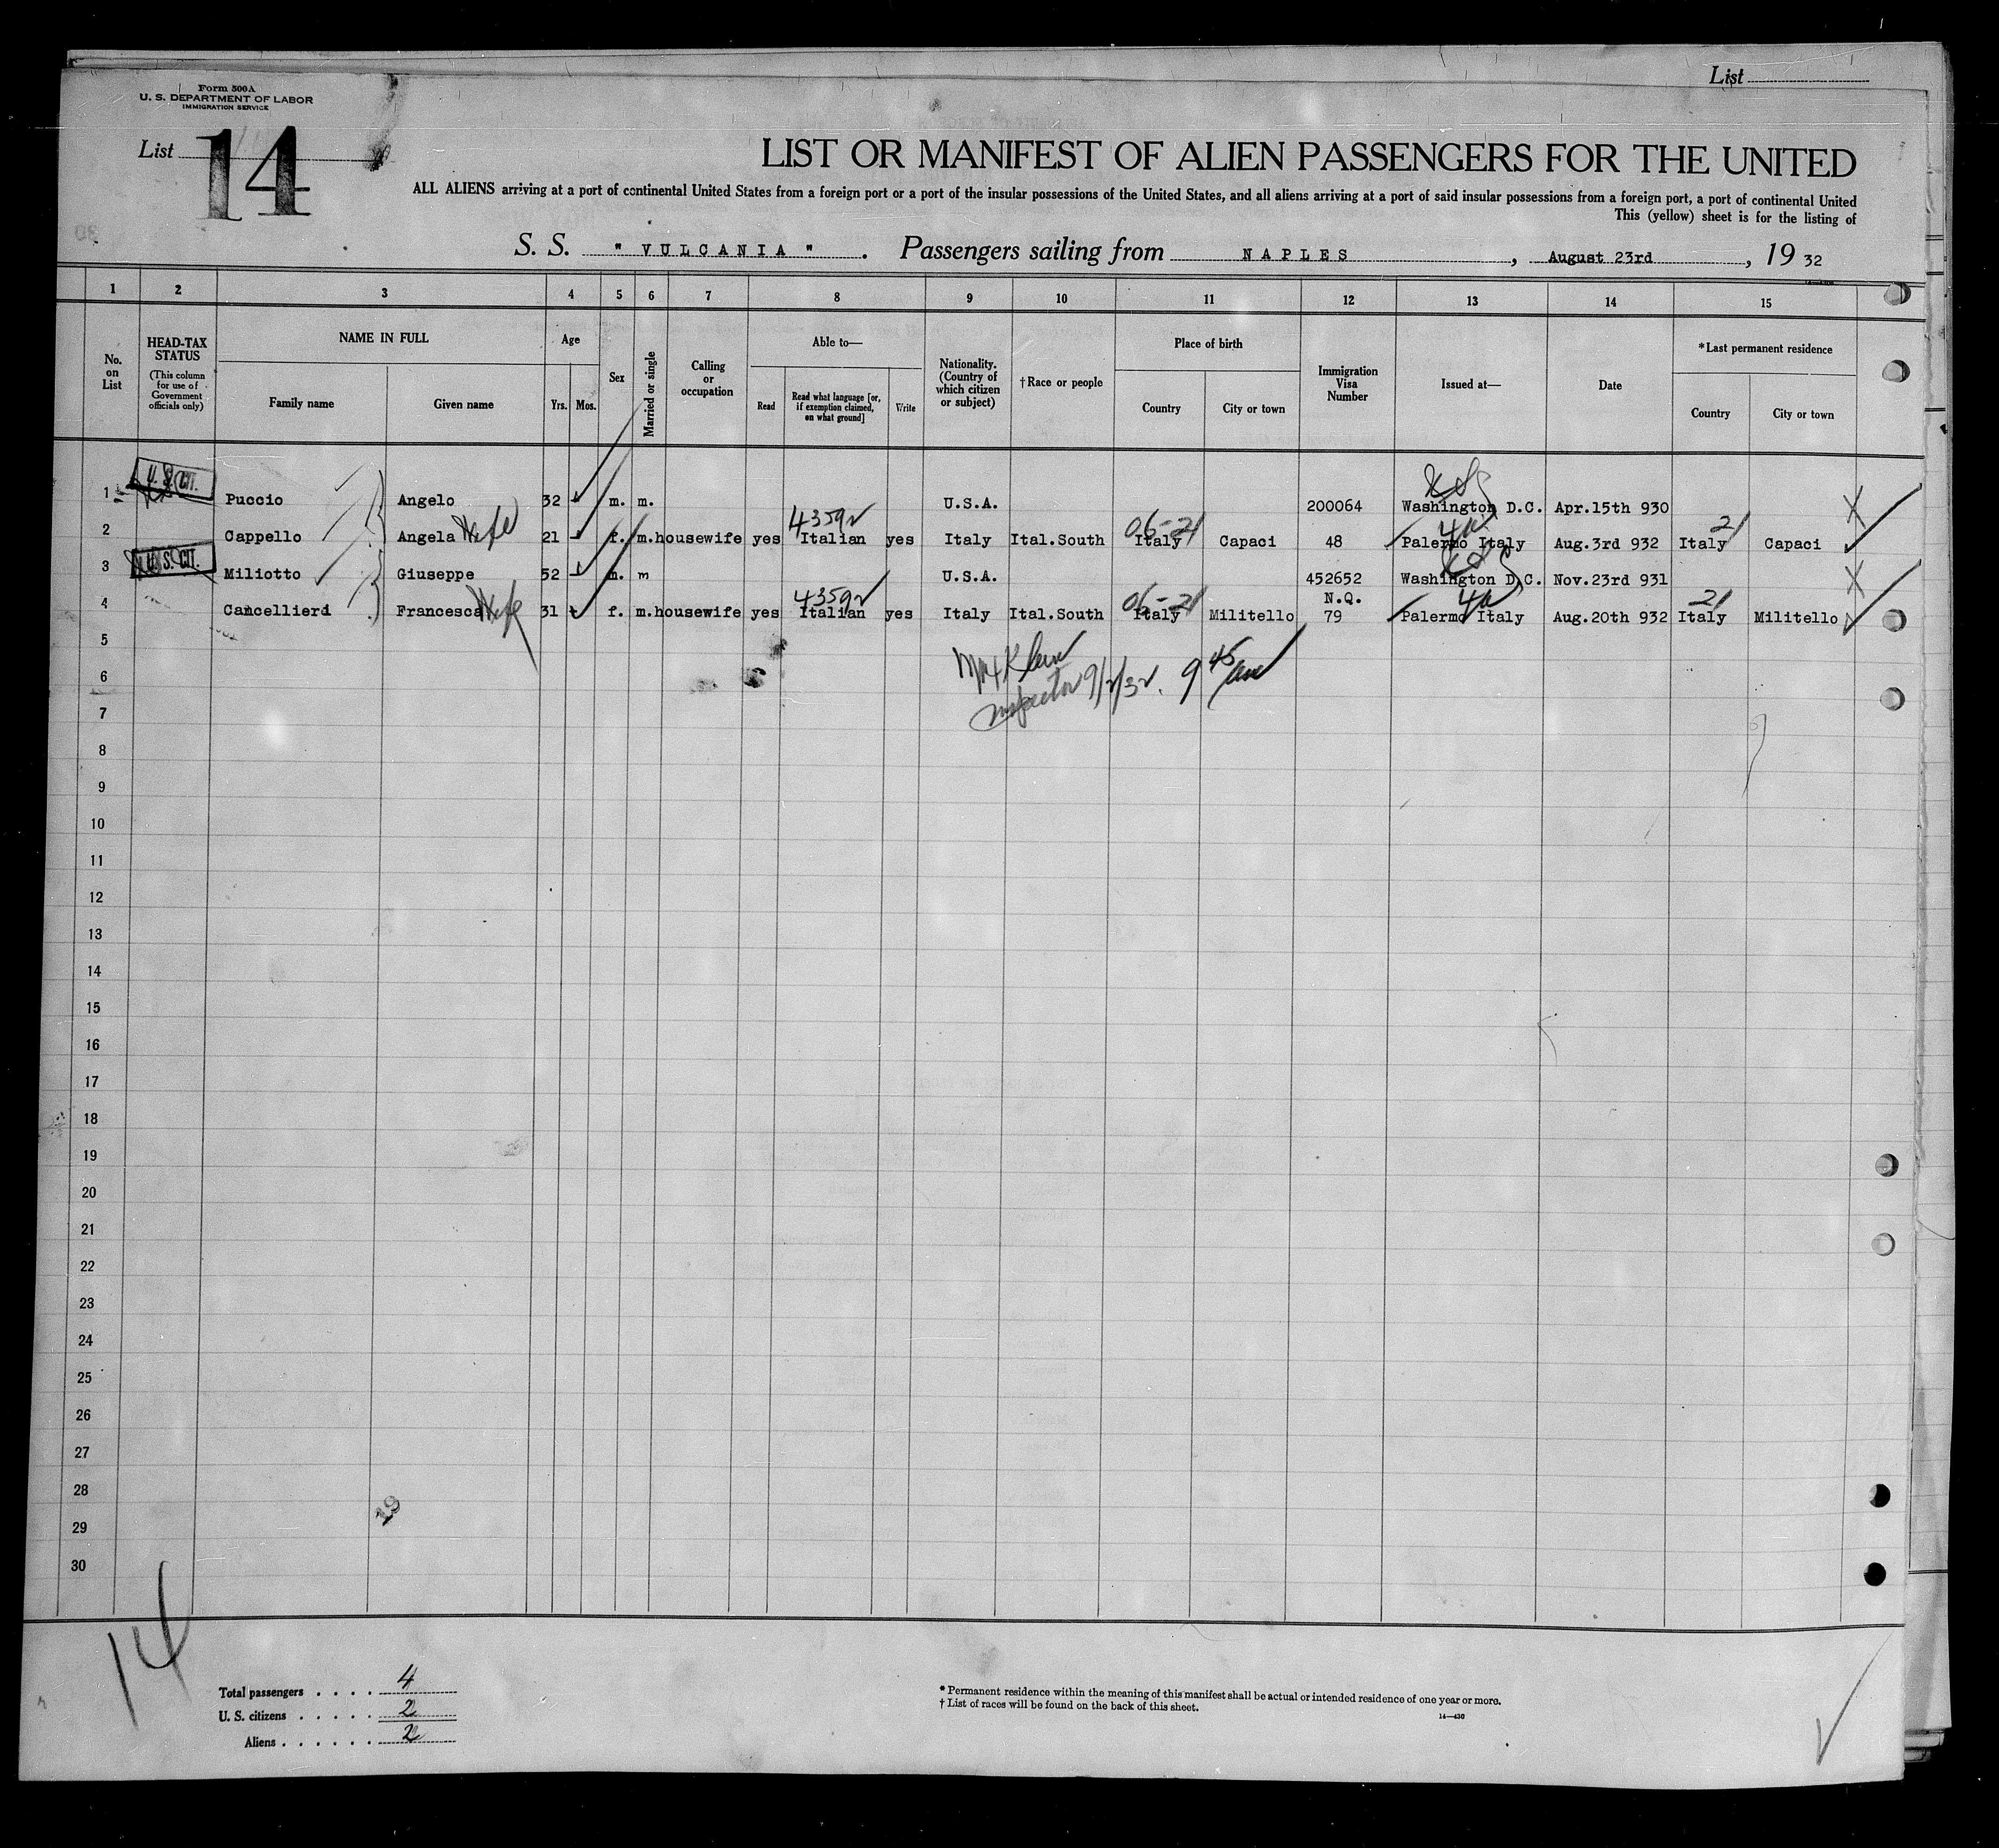 List
Form 500A
U. S. DEPARTMENT OF LABOR
IMMIGRATION SERVICE
List 14
LIST OR MANIFEST OF ALIEN PASSENGERS FOR THE UNITED
ALL ALIENS arriving at a port of continental United States from a foreign port or a port of the insular possessions of the United States, and all aliens arriving at a port of said insular possessions from a foreign port, a port of continental United
This (yellow) sheet is for the listing of
S. S. " VULCANIA " . Passengers sailing from NAPLES , August 23rd , 19 32
1 2 3 4 5 6 7 8 9 10 11 12 13 14 15
No. on List
HEAD-TAX STATUS (This column for use of Government officials only)
NAME IN FULL
Family name
Given name
Age
Yrs.
Mos.
Sex
Married or single
Calling or occupation
Able to—
Read
Read what language [or, if exemption claimed, on what ground]
Write
Nationality. (Country of which citizen or subject)
†Race or people
Place of birth
Country
City or town
Immigration Visa Number
Issued at—
Date
*Last permanent residence
Country
City or town
1 U. S. CIT. Puccio Angelo 32 m. m. U.S.A. 200064 Washington D.C. Apr.15th 930
4359 06-21 4 21
2 Cappello Angela Wife 21 f. m. housewife yes Italian yes Italy Ital.South Italy Capaci 48 Palermo Italy Aug.3rd 932 Italy Capaci
3 U. S. CIT. Miliotto Giuseppe 52 m. m U.S.A. 452652 Washington D.C. Nov.23rd 931
4359 06-21 N.Q. 4 21
4 Cancellieri Francesca Wife 31 f. m. housewife yes Italian yes Italy Ital.South Italy Militello 79 Palermo Italy Aug.20th 932 Italy Militello
5
Klein
6
Inspector 9/2/32. 9 45 am
7
8
9
10
11
12
13
14
15
16
17
18
19
20
21
22
23
24
25
26
27
28
29
30
14
Total passengers . . . . 4
U. S. citizens . . . . . 2
Aliens . . . . . . 2
* Permanent residence within the meaning of this manifest shall be actual or intended residence of one year or more.
† List of races will be found on the back of this sheet.
14—430